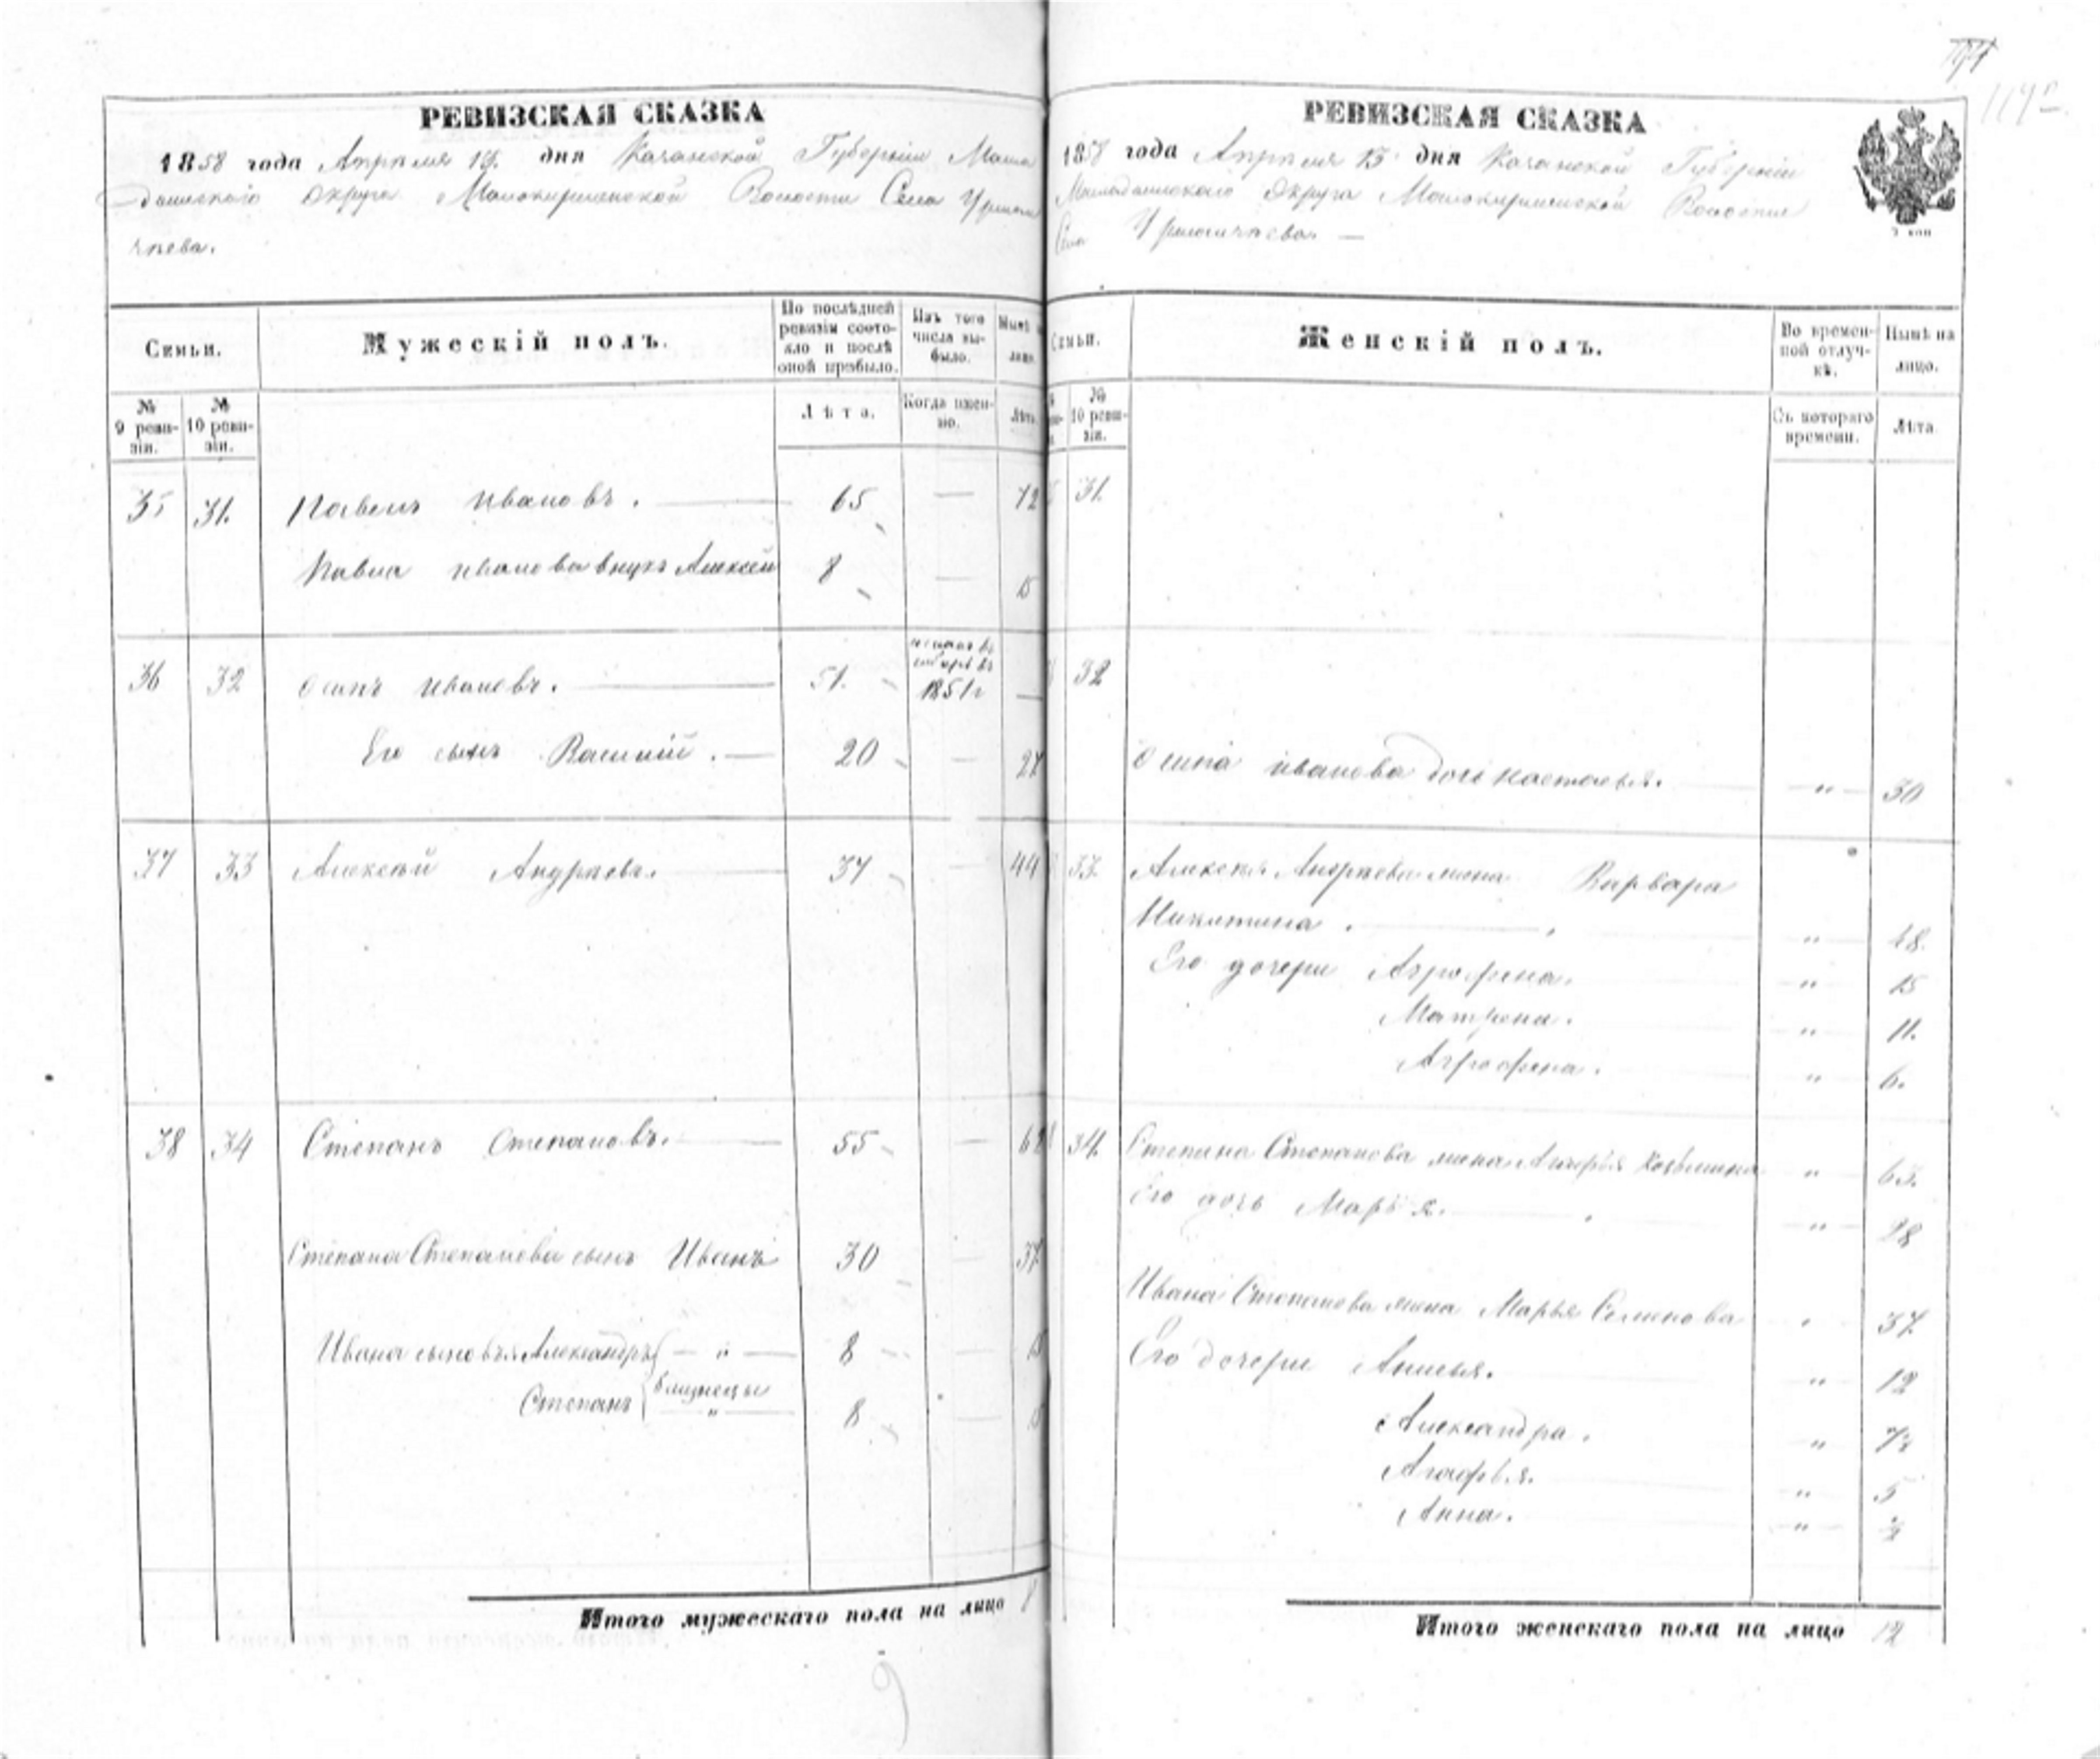 РЕВИЗСКАЯ СКАЗКА
1858 года Апрѣля 15. дня Казанской Губерніи Мама
дышскаго Округа Малокирменской Волости Села Урясь
чнева.
Семьи.
Мужескій полъ.
По послѣдней ревизіи состояло и послѣ оной прибыло.
Изъ того числа выбыло.
Нынѣ на лицо.
№ 9 ревизіи.
№ 10 ревизіи.
Лѣта.
Когда именно.
Лѣта.
35 31. Павелъ Ивановъ. 65 — 72
Павла Иванова внукъ Алексѣй 8 — 15
36 32 Осипъ Ивановъ. 51. 1851г —
Его сынъ Василій. 20 — 27
37 33 Алексѣй Андреевъ. 37 — 44
38 34 Степанъ Степановъ. 55 — 62
Степана Степанова сынъ Иванъ 30 — 37
Ивана сыновья Александръ — " — 8 — 15
близнецы
Степанъ — " — 8 — 15
Итого мужескаго пола на лицо 8
РЕВИЗСКАЯ СКАЗКА
1858 года Апрѣля 15 дня Казанской Губерніи
Мамадышскаго Округа Малокирменской Волости
Села
2 коп
Семьи.
Женскій полъ.
Во временной отлучкѣ.
Нынѣ на лицо.
№ 10 ревизіи.
Съ котораго времени.
Лѣта.
31.
32
Осипа Иванова дочь Настасья. " 30
33. Алексѣя Андреева жена Варвара
Никитина. " 48.
Его дочери Агрофена. " 15
Матрена. " 11.
Агрофена. " 6.
34. Степана Степанова жена " 63.
Его дочь Марья. " 28
Ивана Степанова жена Марья Семенова " 37
Его дочери Анисья. " 12
Александра. " 7½
Агафья. " 5
Анна. " ½
Итого женскаго пола на лицо 12